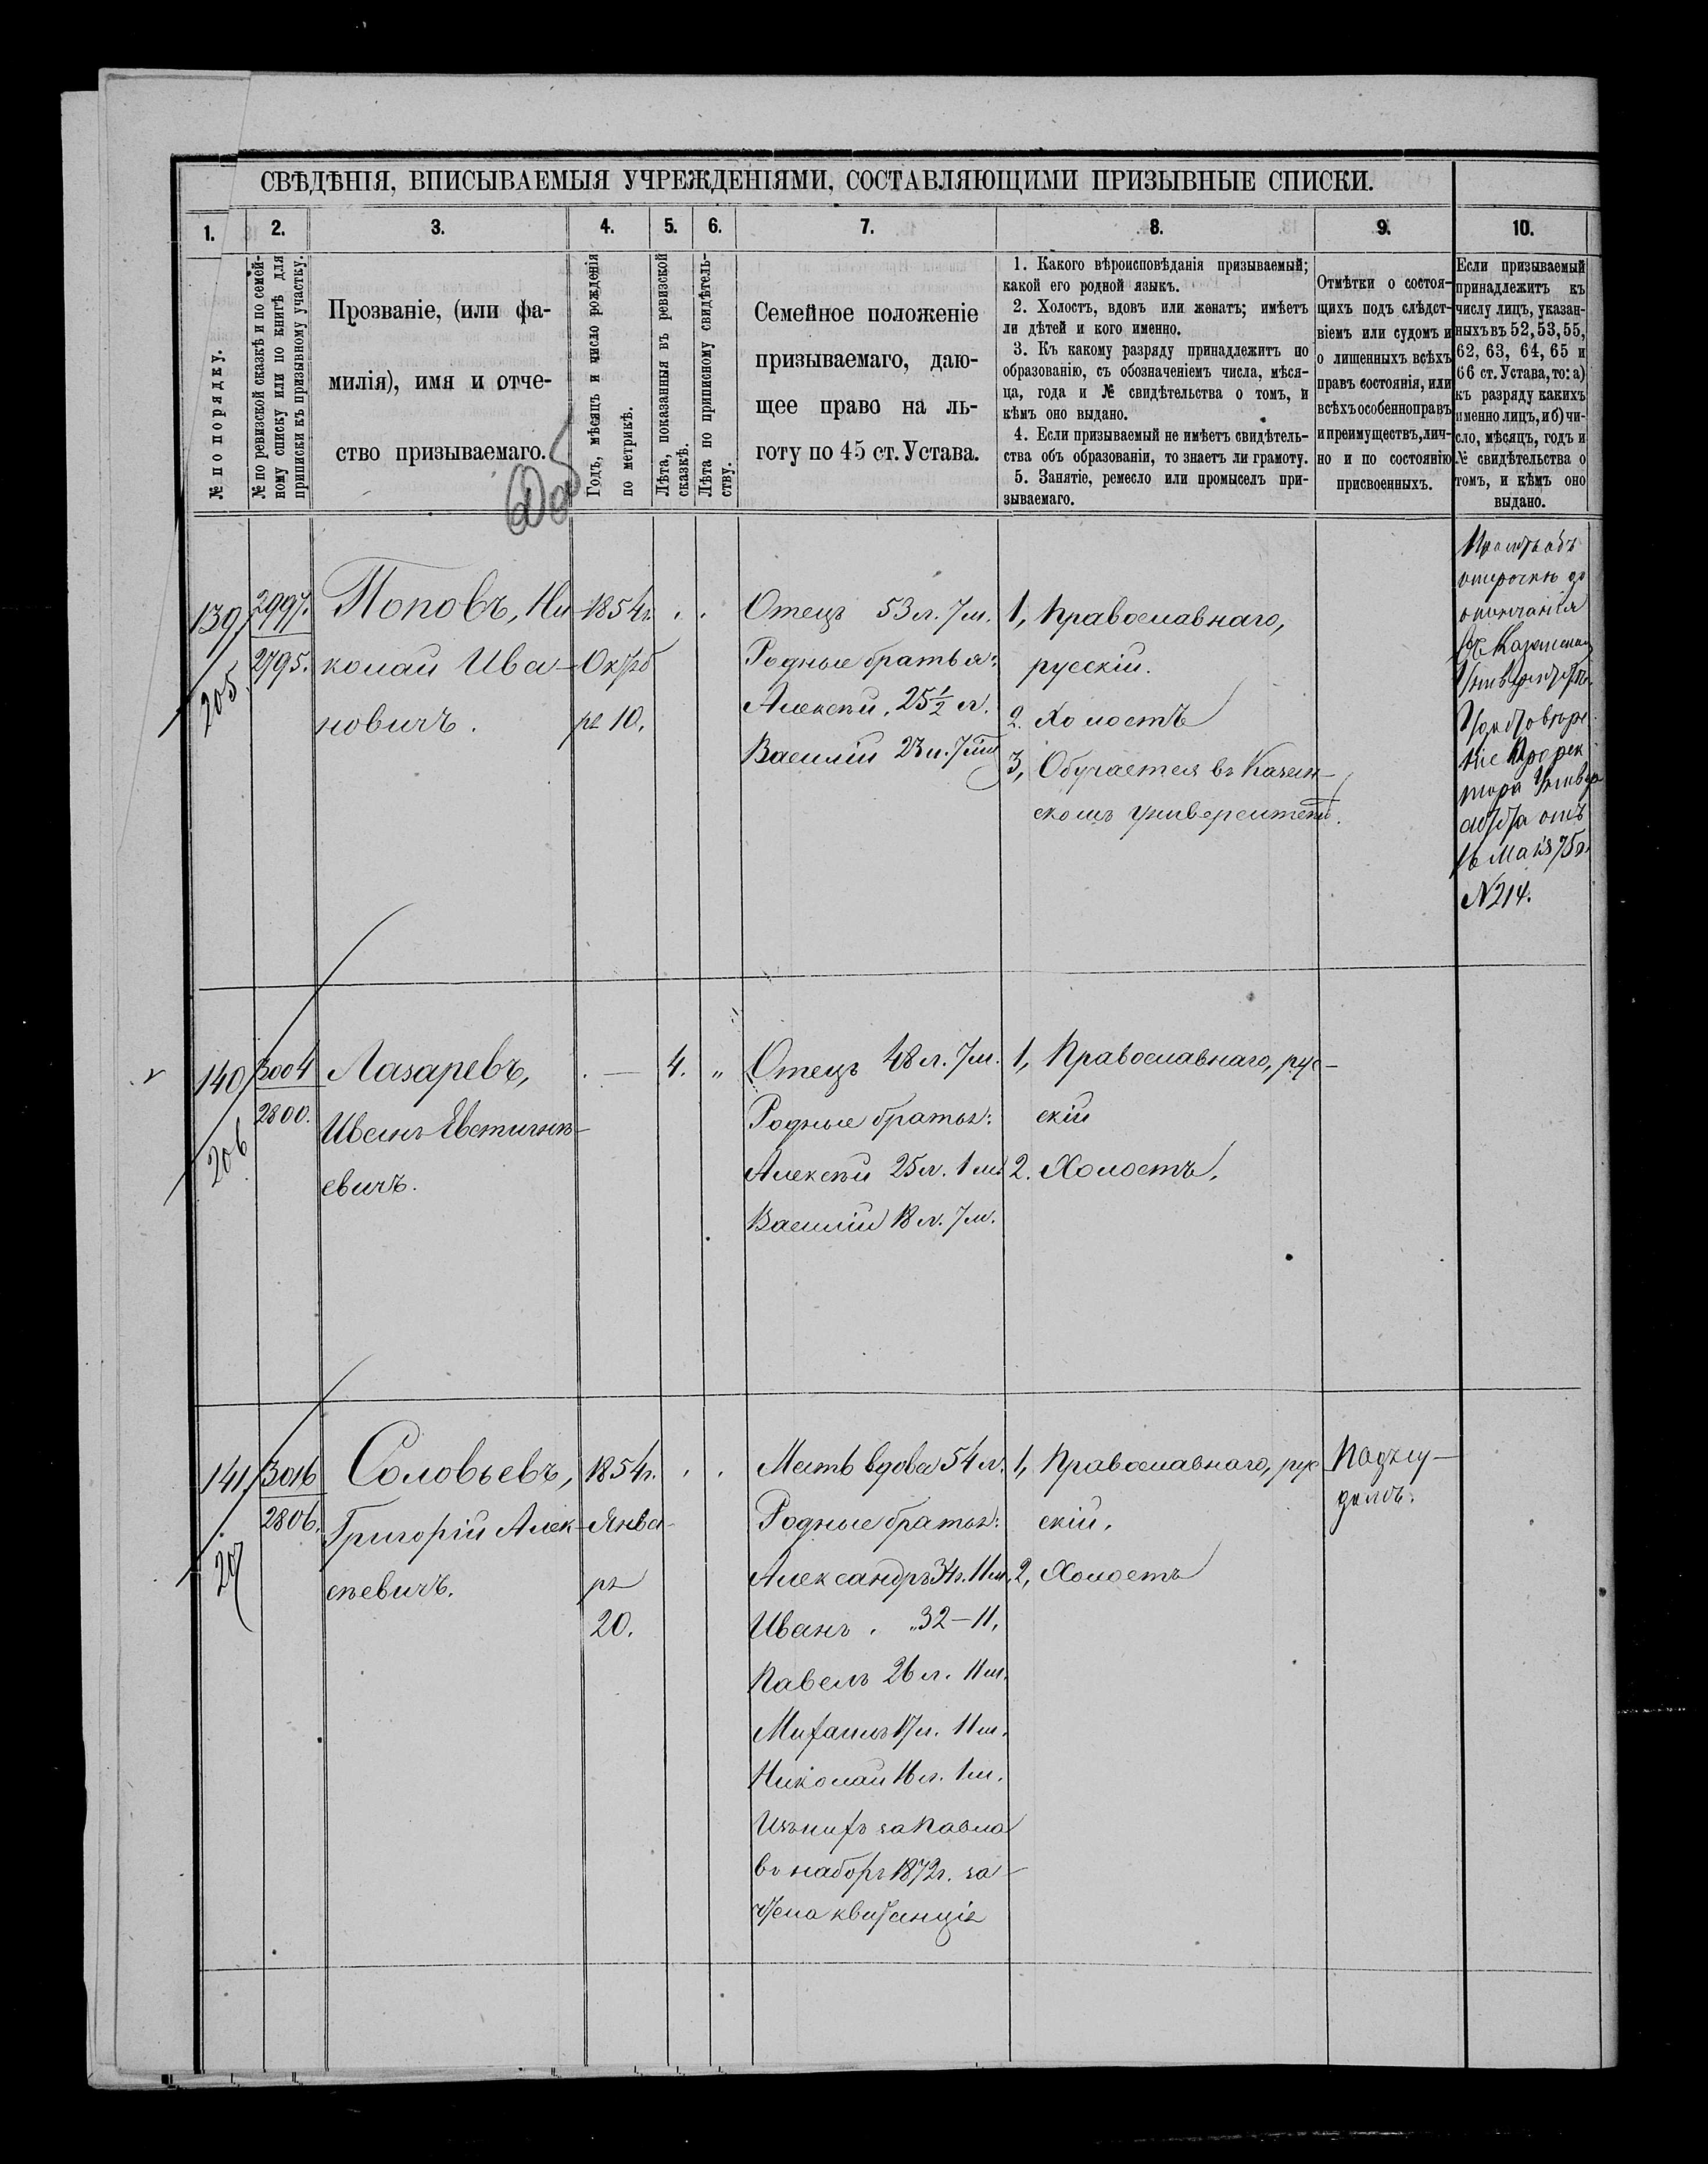 СВѢДѢНІЯ, ВПИСЫВАЕМЫЯ УЧРЕЖДЕНІЯМИ, СОСТАВЛЯЮЩИМИ ПРИЗЫВНЫЕ СПИСКИ.
1.
2.
3.
4.
5.
6.
7.
8.
9.
10.
№ по порядку.
№ по ревизской сказкѣ и по семей-
ному списку или по книгѣ для
приписки къ призывному участку.
Прозваніе, (или фа-
милія), имя и отче-
ство призываемаго.
Годъ, мѣсяцъ и число рожденія
по метрикѣ.
Лѣта, показанныя въ ревизской
сказкѣ.
Лѣта по приписному свидѣтель-
ству.
Семейное положеніе
призываемаго, даю-
щее право на ль-
готу по 45 ст. Устава.
1. Какого вѣроисповѣданія призываемый;
какой его родной языкъ.
2. Холостъ, вдовъ или женатъ; имѣетъ
ли дѣтей и кого именно.
3. Къ какому разряду принадлежитъ по
образованію, съ обозначеніемъ числа, мѣся-
ца, года и № свидѣтельства о томъ, и
кѣмъ оно выдано.
4. Если призываемый не имѣетъ свидѣтель-
ства объ образованіи, то знаетъ ли грамоту.
5. Занятіе, ремесло или промыселъ при-
зываемаго.
Отмѣтки о состоя-
щихъ подъ слѣдст-
віемъ или судомъ и
о лишенныхъ всѣхъ
правъ состоянія, или
всѣхъ особенно правъ
и преимуществъ, лич-
но и по состоянію
присвоенныхъ.
Если призываемый
принадлежитъ къ
числу лицъ, указан-
ныхъ въ 52, 53, 55,
62, 63, 64, 65 и
66 ст. Устава, то: а)
къ разряду какихъ
именно лицъ, и б) чи-
сло, мѣсяцъ, годъ и
№ свидѣтельства о
томъ, и кѣмъ оно
выдано.
139
205
2997.
2795.
Поповъ, Ни
колай Ива-
новичъ.
1854г.
Октяб
ря 10.
Отецъ 53 л. 7 м.
Родные братья:
Алексѣй, 25½ л.
Василій 23 л. 7 м
1, Православнаго,
русскій.
2. Холостъ
3, Обучается въ Казан-
скомъ университетѣ.
объ
отрочкѣ до
окончанія
въ Казанском
Университ.
Удостовѣре
ніе Прорек
тора Универ
ситета отъ
16 Мая 75 г.
N 214.
140
206
3004
2800.
Лазаревъ,
Иванъ
евичъ.
. — 4. „
Отецъ 48 л. 7 м.
Родные братья:
Алексѣй 25 л. 1 м.
Василій 18 л. 7 м.
1, Православнаго, рус-
скій
2. Холостъ.
141.
207
3016
2806.
Соловьевъ,
Григорій Алек-
сѣевичъ.
1854г.
Янва-
ря
20.
Мать вдова 54 л.
Родные братья:
Александръ 34 г. 11 м.
Иванъ „ 32 – 11.
Павелъ 26 л. 11 м.
Михаилъ 17 л. 11 м.
Николай 16 л. 1 м.
Изъ нихъ за Павла
въ наборъ 1872 г. за-
чтена квитанція
1, Православнаго, рус
скій.
2, Холостъ
Подъ су-
домъ.